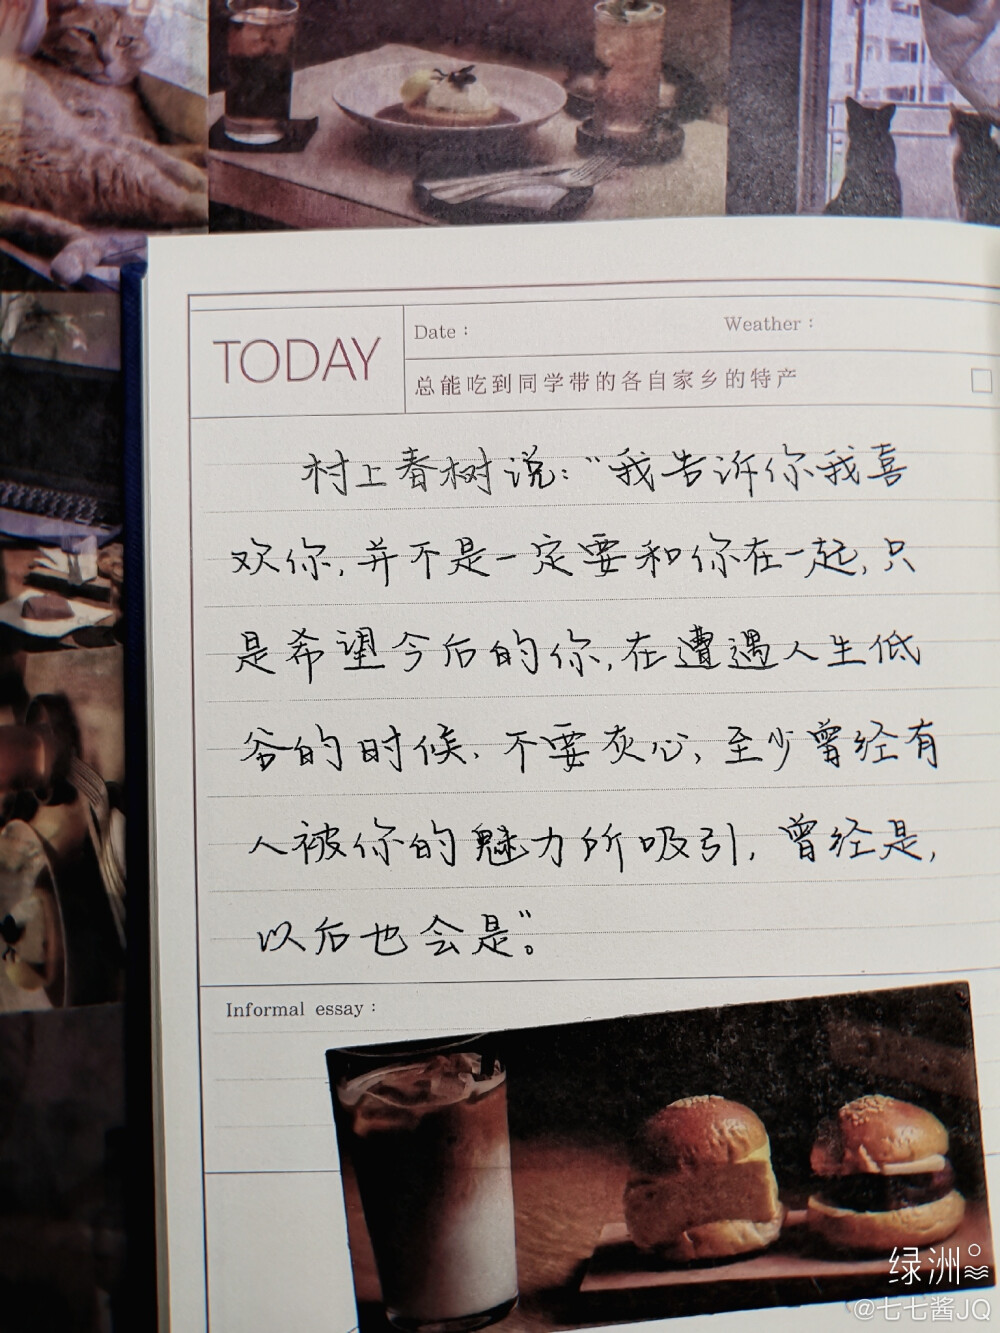 TODAY
Date：
Weather：
总能吃到同学带的各自家乡的特产
村上春树说：“我告诉你我喜
欢你，并不是一定要和你在一起，只
是希望今后的你，在遭遇人生低
谷的时候，不要灰心，至少曾经有
人被你的魅力所吸引，曾经是，
以后也会是”。
Informal essay：
绿洲
@七七酱JQ